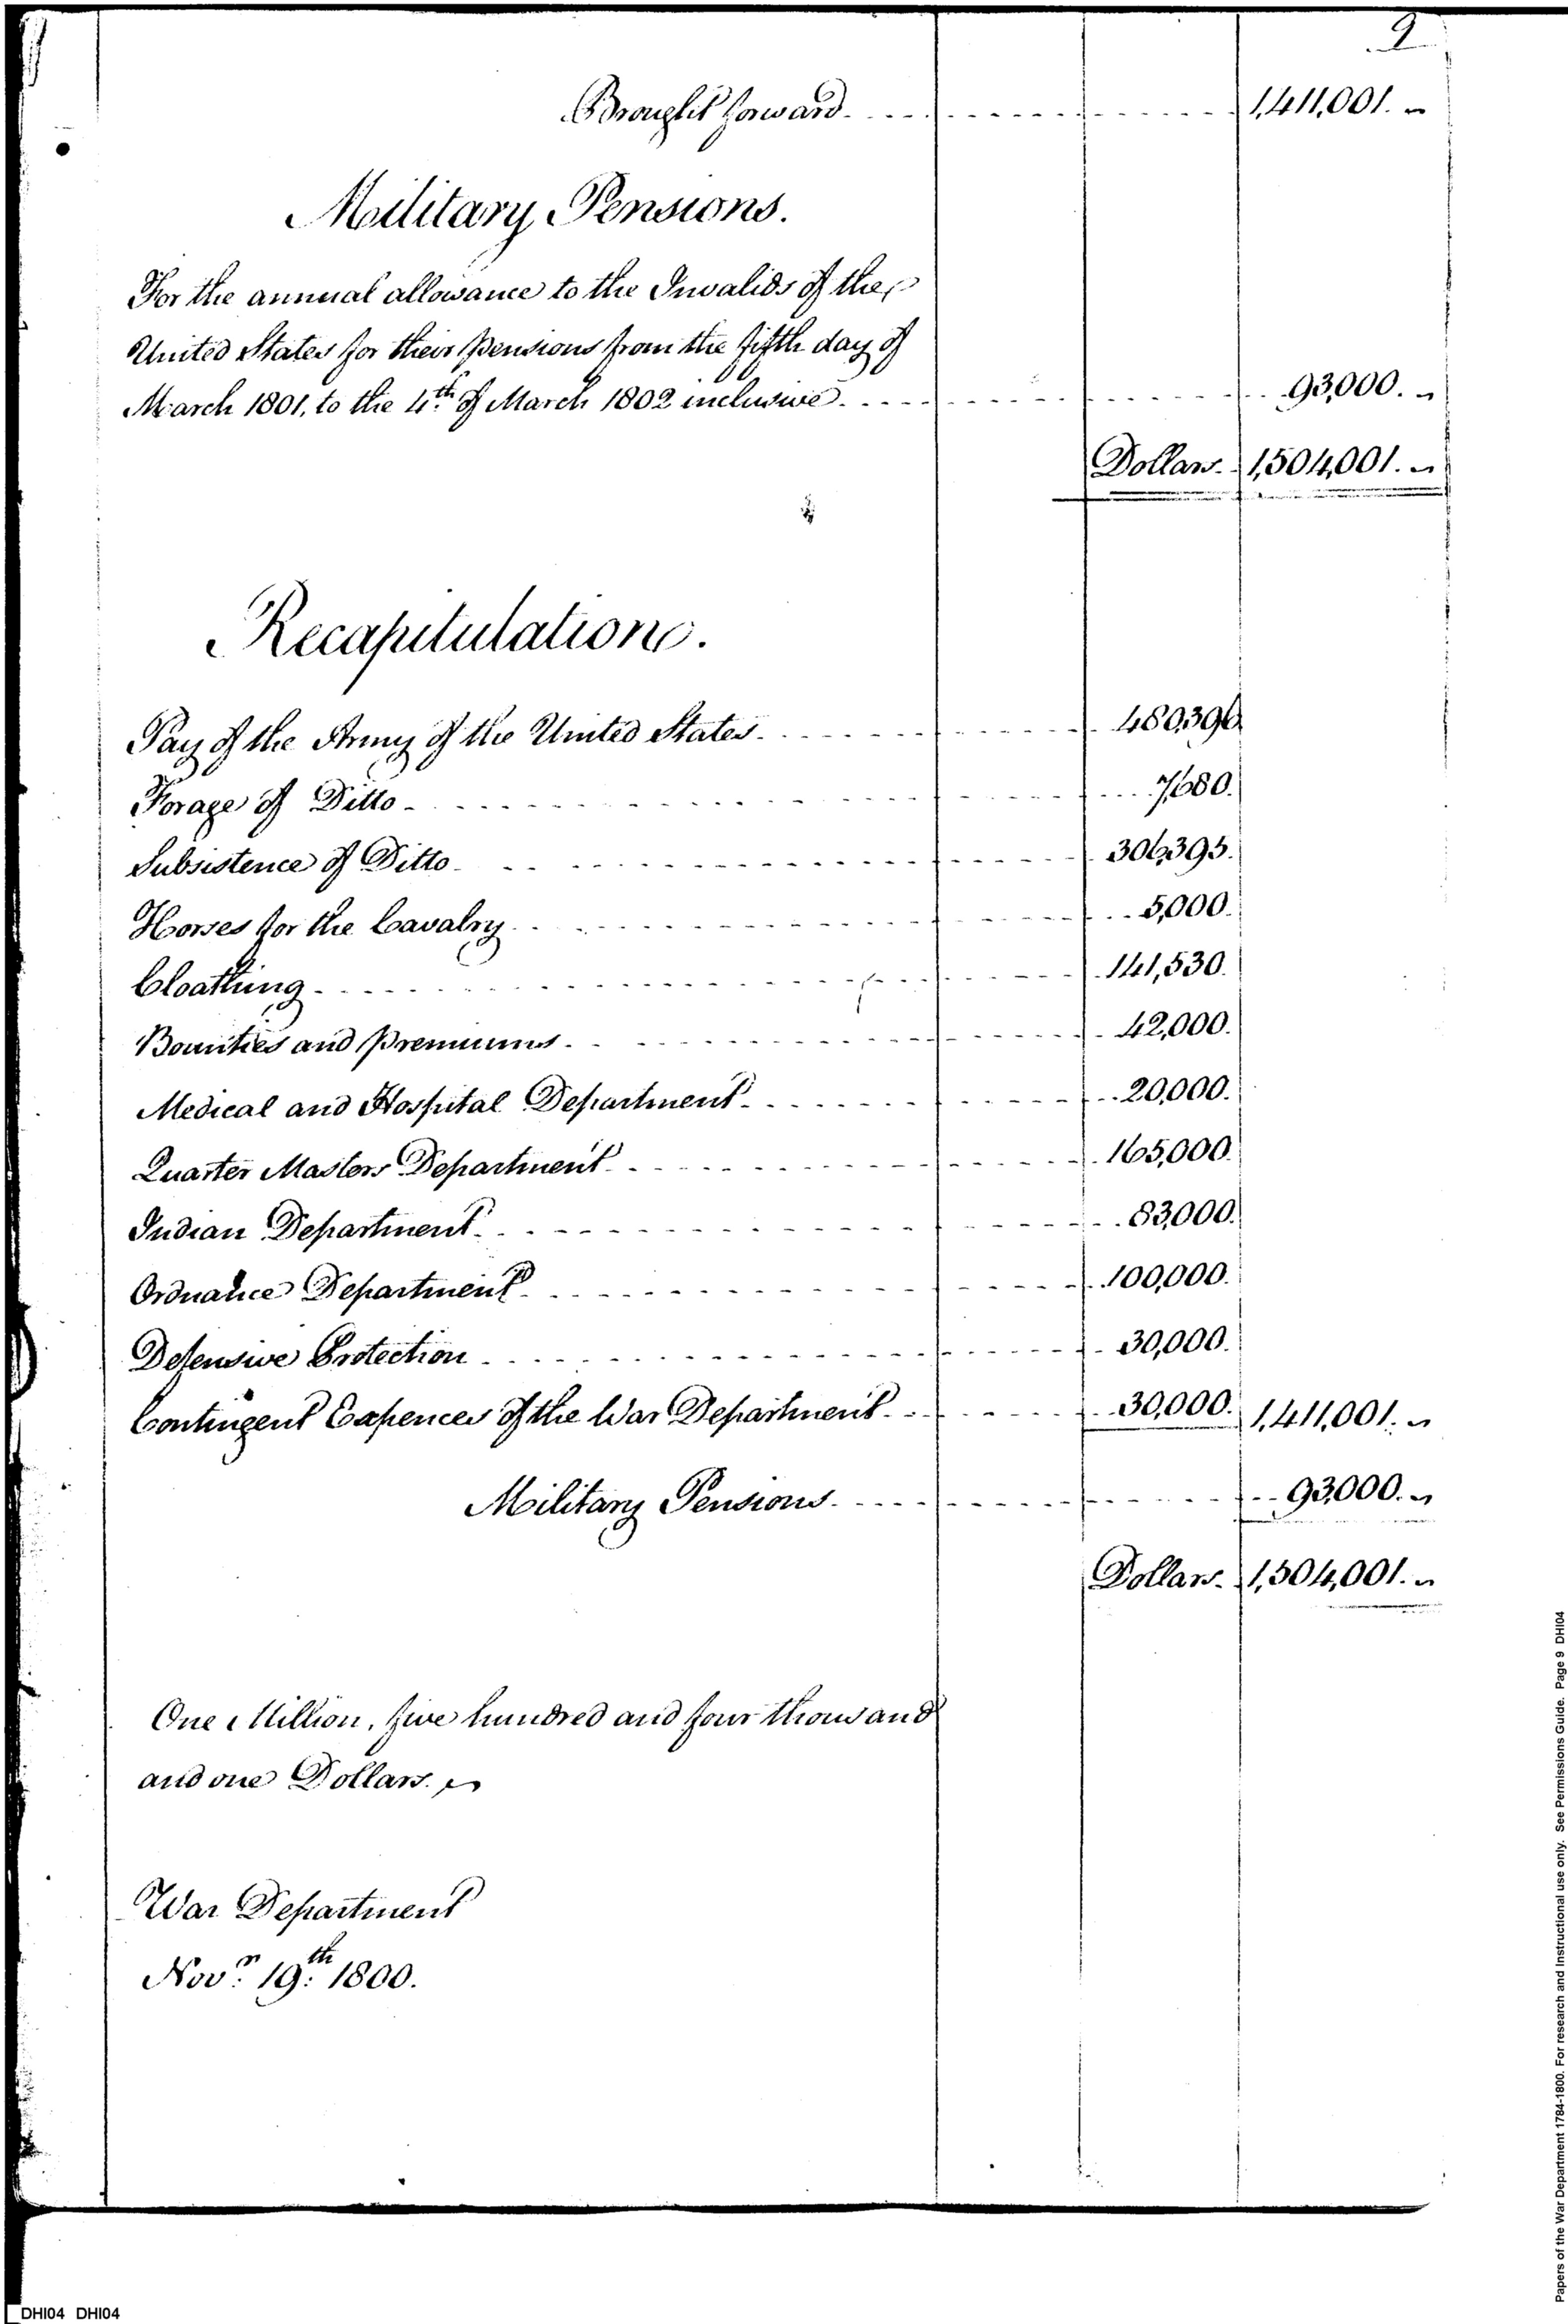 9
Brought forward 1,411,001.
Military Pensions.
For the annual allowance to the Invalids of the
United States for their pensions from the fifth day of
March 1801, to the 4th of March 1802 inclusive 93,000.
Dollars. 1,504,001.
Recapitulation.
Pay of the Army of the United States 480,396
Forage of Ditto 7,680.
Subsistence of Ditto 306,395.
Horses for the Cavalry 5,000.
Cloathing 141,530.
Bounties and premiums 42,000.
Medical and Hospital Department 20,000.
Quarter Masters Department 165,000.
Indian Department 83,000.
Ordnance Department 100,000.
Defensive Protection 30,000.
Contingent Expences of the War Department 30,000. 1,411,001.
Military Pensions 93,000.
Dollars. 1,504,001.
One Million, five hundred and four thousand
and one Dollars.
War Department
Novr. 19th: 1800.
Papers of the War Department 1784-1800. For research and Instructional use only. See Permissions Guide. Page 9 DHI04
DHI04 DHI04